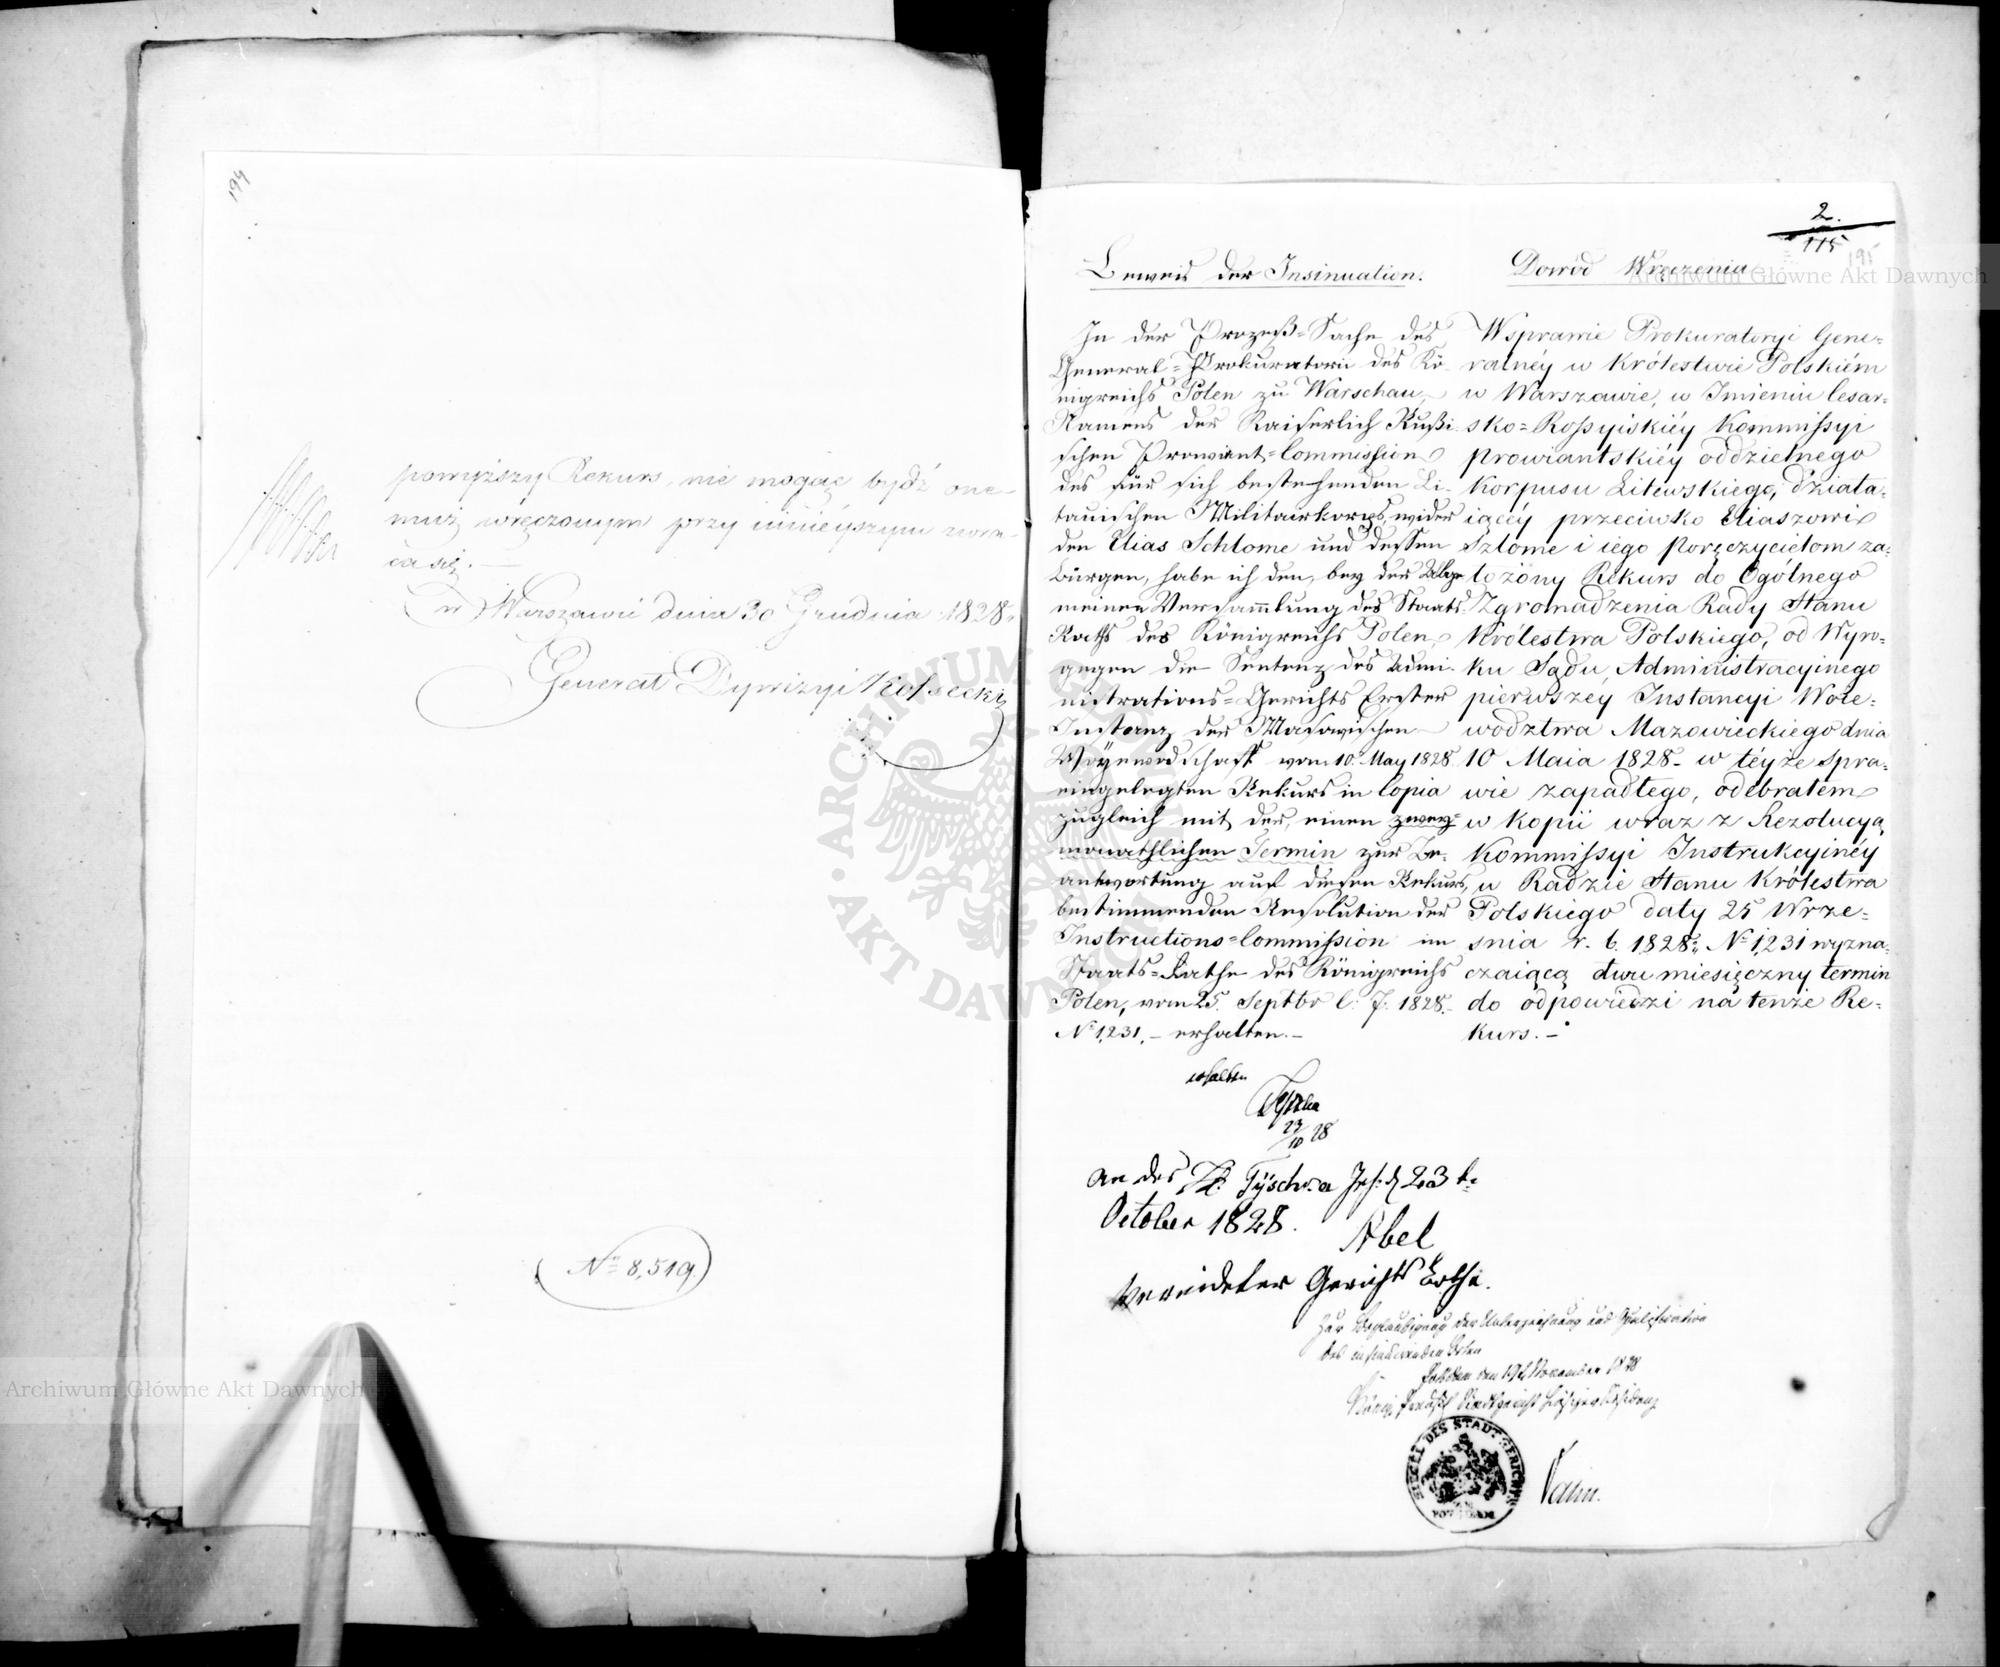 194
powyższy Rekurs, nie mogąc bydź one-
muż wręczonym przy ninieyszym zwra-
ca się. —
w Warszawie dnia 30 Grudnia 1828.
Generał Dywizyi Kossecki
(No 8,519.)
2.
115
195
Beweis der Insinuation.
In der Prozeß-Sache des
General-Prokuratorii des Kö-
nigreichs Polen zu Warschau,
Namens der Kaiserlich Rußi-
schen Proviant-Commission
des für sich bestehenden Li-
tauischen Militairkorps, wider
den Elias Schlome und dessen
Bürgen, habe ich den, bey der Allge-
meinen Versammlung des Staats-
Raths des Königreichs Polen,
gegen die Sentenz des Admi-
nistrations-Gerichts Erster
Instanz der Masowischen
Woyewodschaft vom 10. May 1828
eingelegten Rekurs in Copia
zugleich mit der, einen zwey-
monathlichen Termin zur Be-
antwortung auf diesen Rekurs,
bestimmenden Resolution der
Instructions-Commission im
Staats-Rathe des Königreichs
Polen, vom 25. Septbr l. J. 1828.
No 1,231, — erhalten. —
Dowód Wręczenia
Wsprawie Prokuratoryi Gene-
ralnéy w Królestwie Polskiém
w Warszawie, w Imieniu Cesar-
sko-Rossyiskiéy Kommissyi
prowiantskiéy oddzielnego
Korpusu Litewskiego, działa-
iącéy przeciwko Eliaszowi
Szlome i iego Poręczycielom za-
łożony Rekurs do Ogólnego
Zgromadzenia Rady Stanu
Królestwa Polskiego, od Wyro-
ku Sądu Administracyinego
pierwszey Instancyi Woie-
wodztwa Mazowieckiego dnia
10 Maia 1828 - w téyże spra-
wie zapadłego, odebrałem
w kopii wraz z Rezolucyą
Kommissyi Instrukcyinéy
w Radzie Stanu Królestwa
Polskiego daty 25 Wrze-
śnia r. b. 1828. No 1,231 wyzna-
czaiącą dwu miesięczny termin
do odpowiedzi na tenże Re-
kurs. —
erhalten
23/10 28
October 1828.
Abel
Vereideter Gerichts Bothe.
Zur Beglaubigung der Unterzeichnung und Qualification
des insinuirenden Boten
Potsdam den 19t November 1828
SIEGEL DES STADT GERICHTS
POTSDAM
Archiwum Główne Akt Dawnych
Archiwum Główne Akt Dawnych
ARCHIWUM GŁÓWNE AKT DAWNYCH